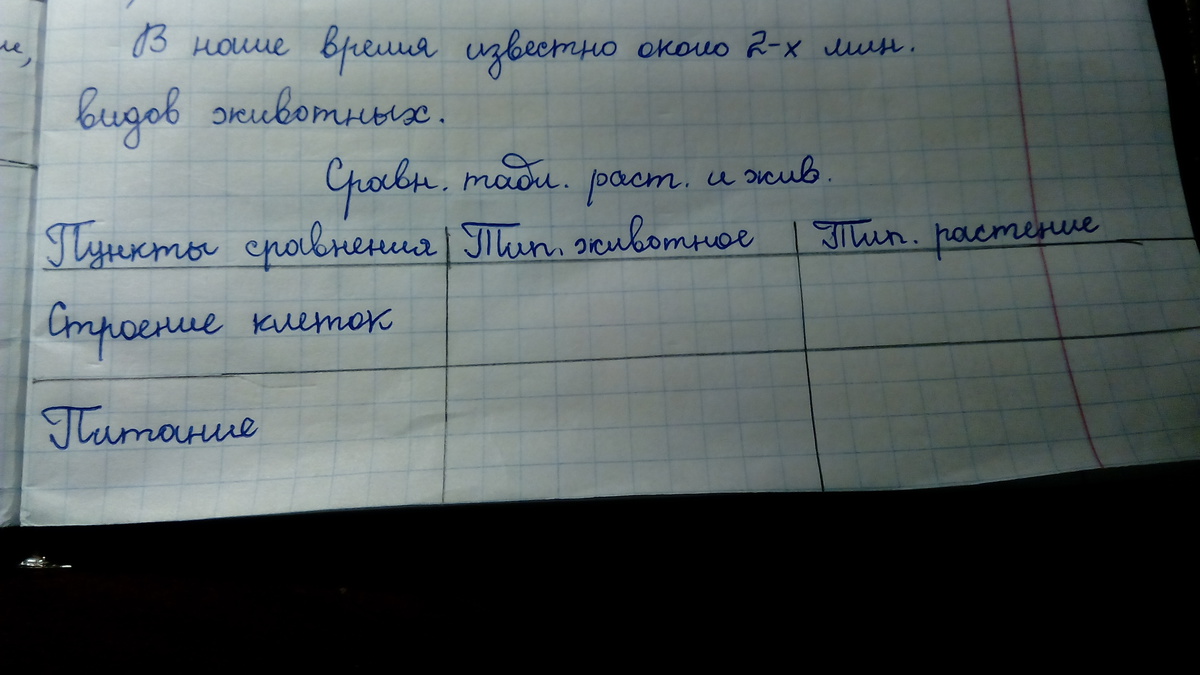 В наше время известно около 2-х млн.
видов животных.
Сравн. табл. раст. и жив.
Пункты сравнения Тип. животное Тип. растение
Строение клеток
Питание